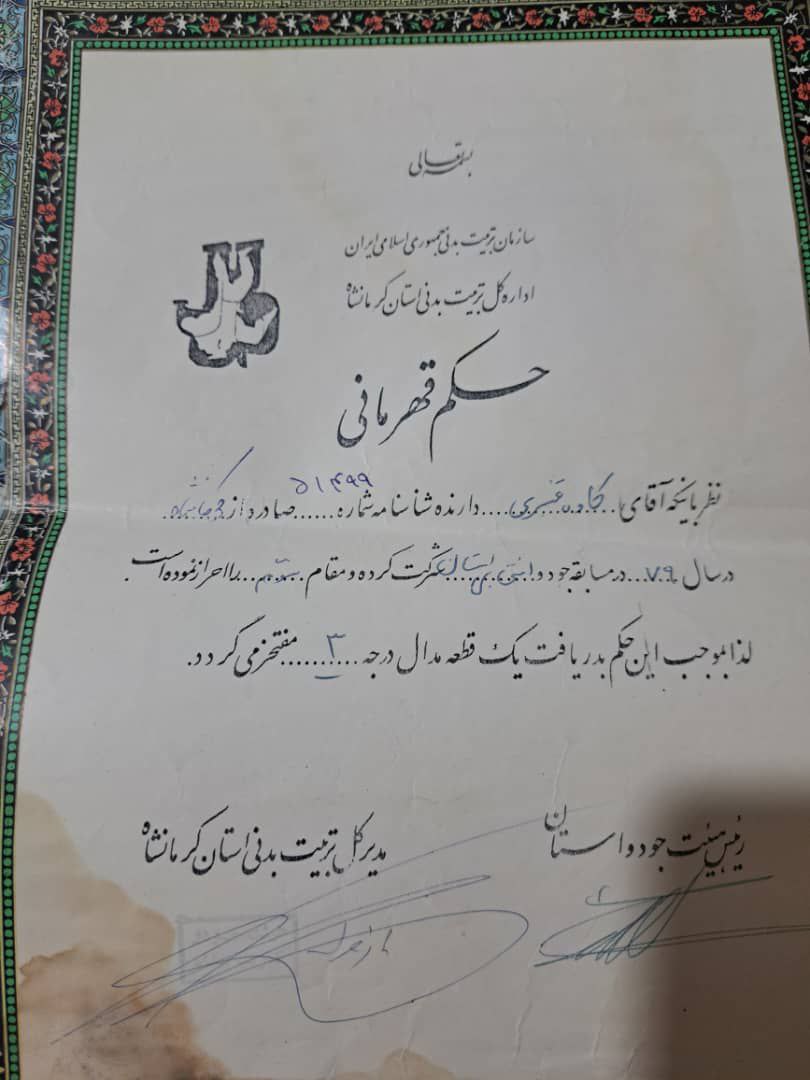 بسمه تعالی
سازمان تربیت بدنی جمهوری اسلامی ایران
اداره کل تربیت بدنی استان کرمانشاه
حکم قهرمانی
نظر باینکه آقای کاوه ..... دارنده شناسنامه شماره ۵۱۴۹۹ صادره از کرمانشاه
در سال ۷۹ در مسابقه جودو شرکت کرده و مقام سوم را احراز نموده است.
لذا بموجب این حکم بدریافت یک قطعه مدال درجه ۳ مفتخر می گردد.
رئیس هیئت جودو استان
مدیر کل تربیت بدنی استان کرمانشاه